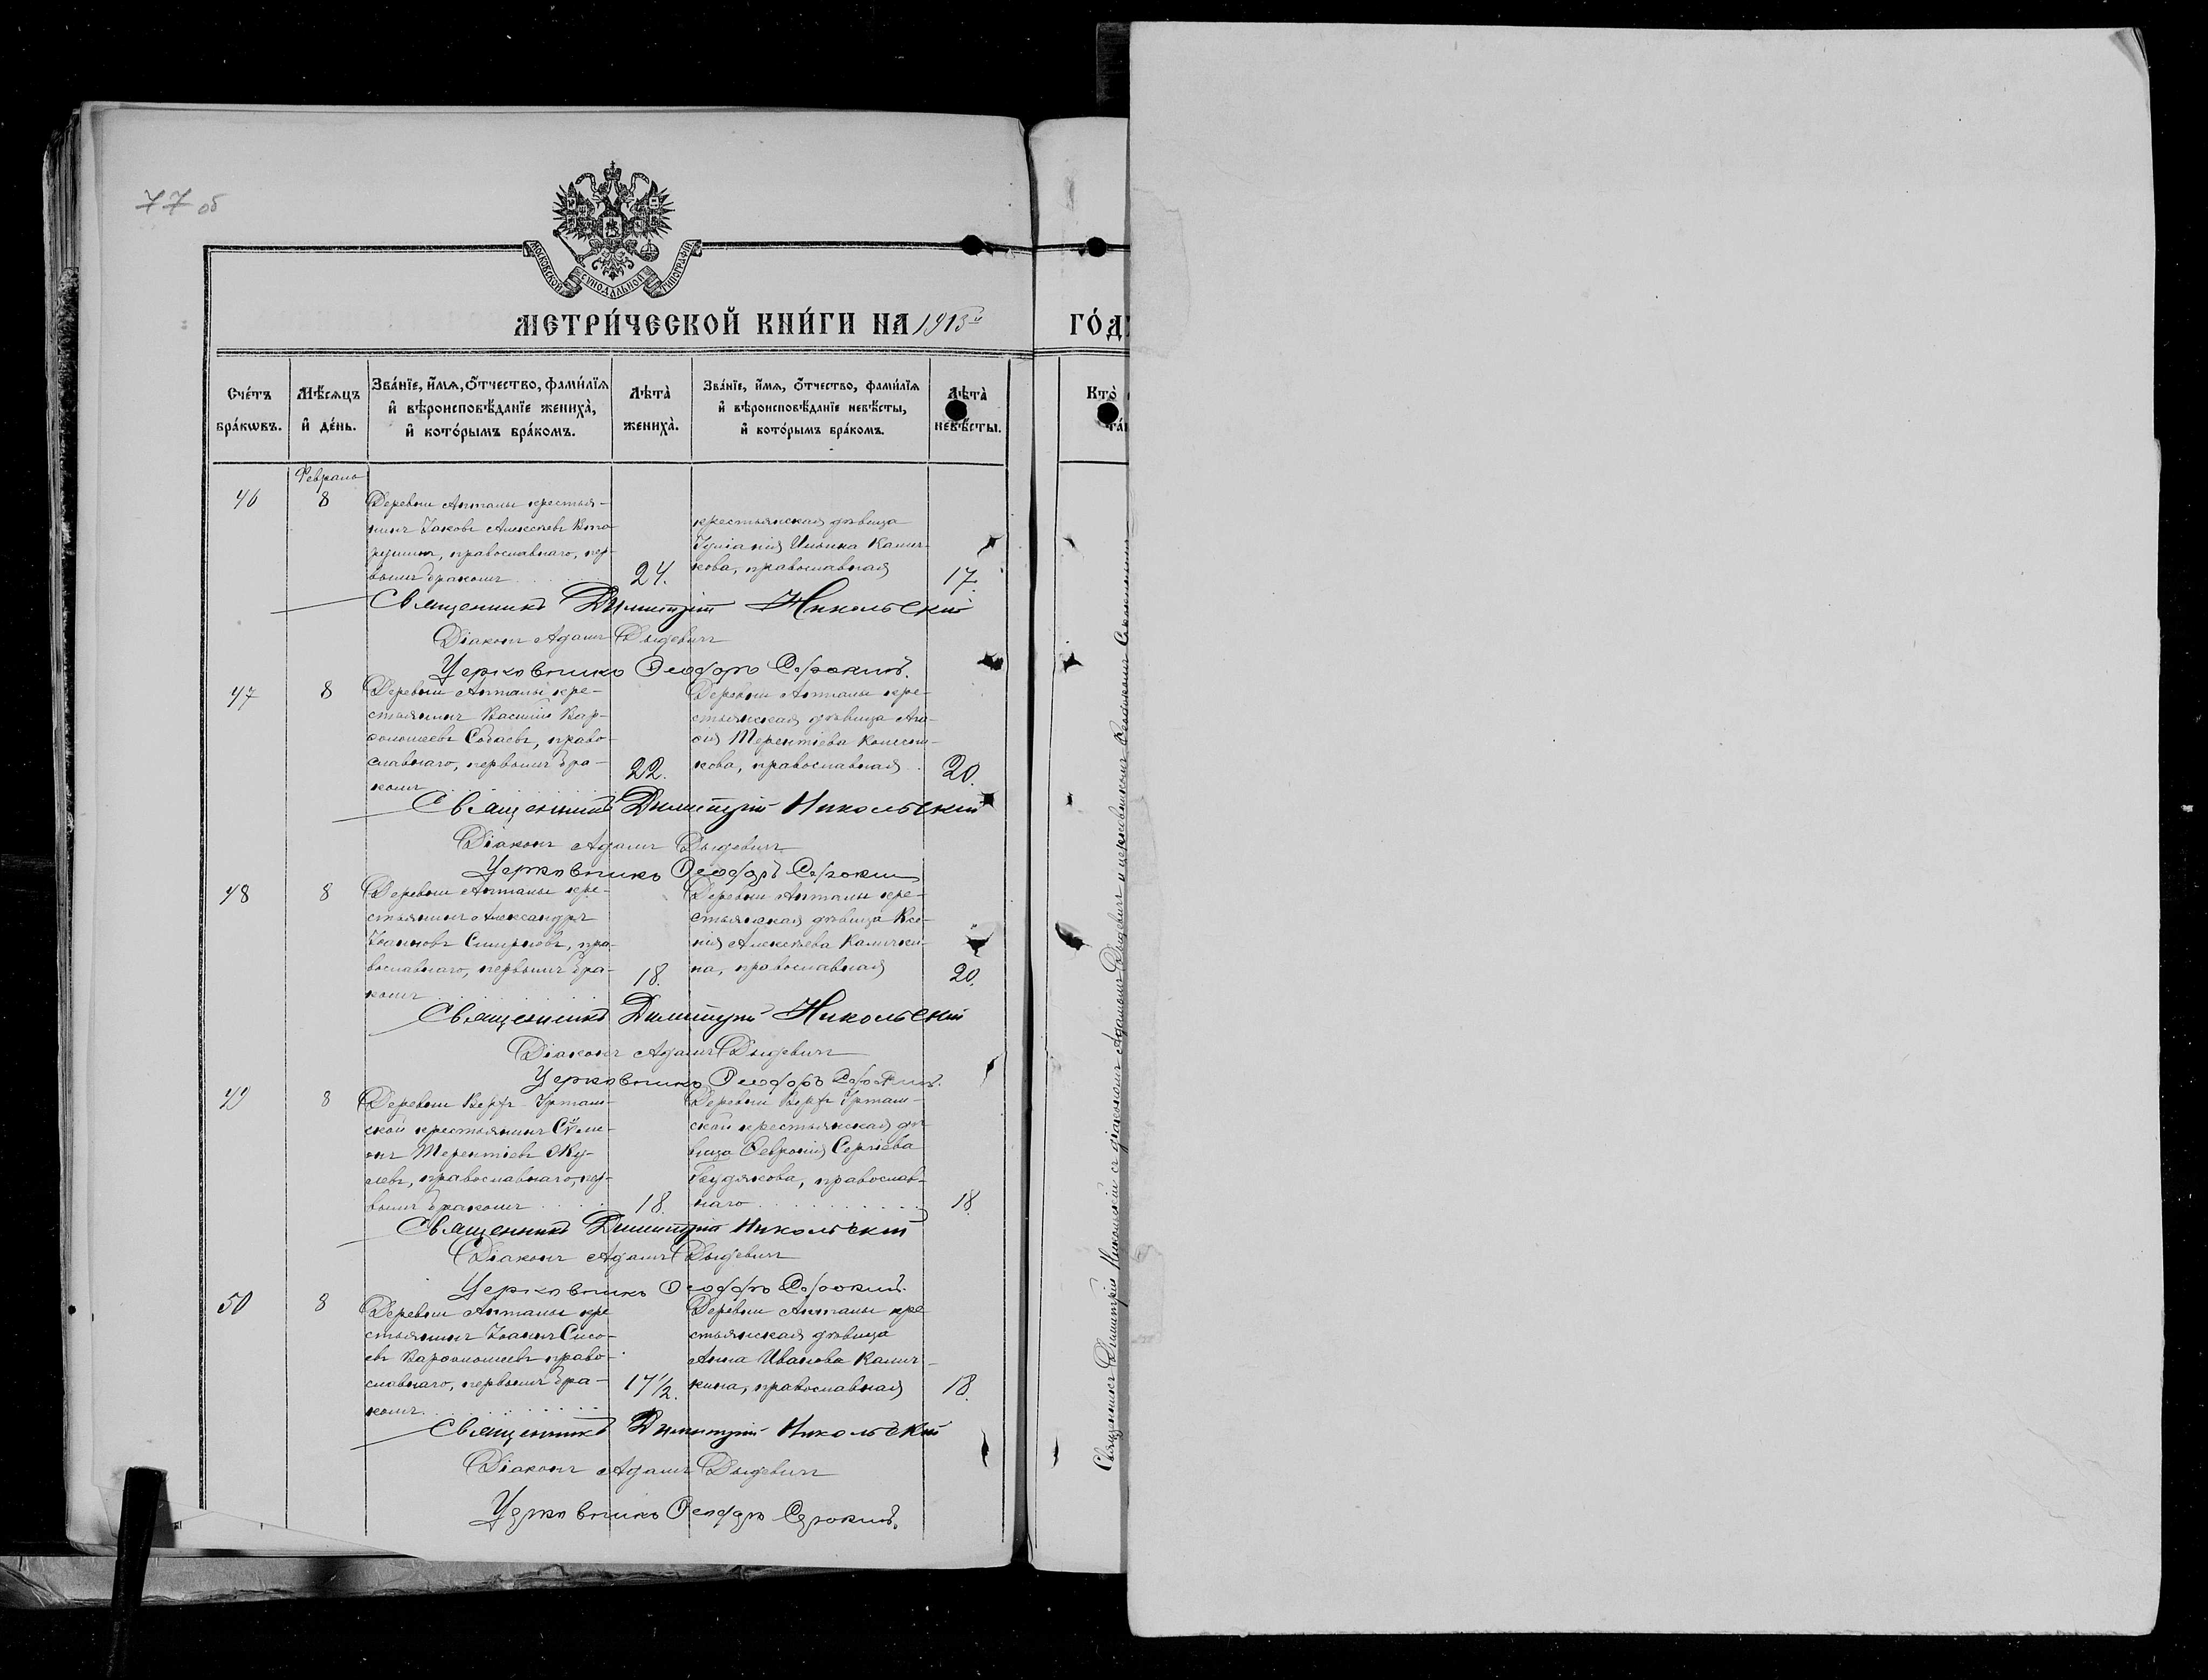 77 об
МОСКОВСКОЙ СѴНОДАЛЬНОЙ ТИПОГРАФІИ
МЕТРИ́ЧЕСКОЙ КНИ́ГИ НА 1913й
ГО́Д
Сче́тъ бра́кѡвъ.
Мѣ́сѧцъ и҆ де́нь.
Зва́нїе, и҆́мѧ, ѻ҆́тчество, фамѝлїѧ и҆ вѣроисповѣ́данїе жениха̀, и҆ кото́рымъ бра́комъ.
Лѣта̀ жениха̀.
Зва́нїе, и҆́мѧ, ѻ҆́тчество, фамѝлїѧ и҆ вѣроисповѣ́данїе невѣ́сты, и҆ кото́рымъ бра́комъ.
Лѣта̀ невѣ́сты.
Кто̀
Февраль
46
8
Деревни Апталы крестья-
нинъ Іаковъ Алексѣевъ
православнаго, пер-
вымъ бракомъ
24.
крестьянская дѣвица
Іуліанія Ильина Калич-
кова, православная
17.
Священникъ Димитрій Никольскій
Діаконъ Адамъ Дыдевичъ
Церковникъ Ѳеодоръ Сорокинъ.
47
8
Деревни Апталы кре-
стьянинъ Василій Вар-
ѳоломеевъ Собаевъ, право-
славнаго, первымъ бра-
комъ
22.
Деревни Апталы кре-
стьянская дѣвица Ага-
ѳія Терентіева
кова, православная
20.
Священникъ Димитрій Никольскій
Діаконъ Адамъ Дыдевичъ
Церковникъ Ѳеодоръ Сорокин
48
8
Деревни Апталы кре-
стьянинъ Александръ
Іоанновъ Смирновъ, пра-
вославнаго, первымъ бра-
комъ
18.
Деревни Апталы кре-
стьянская дѣвица Ксе-
нія Алексѣева Калички-
на, православная
20.
Священникъ Димитрій Никольскій
Діаконъ Адамъ Дыдевичъ
Церковникъ Ѳеодоръ Сорокинъ.
49
8
Деревни Верхъ-Урташ-
ской крестьянинъ Сѵме-
онъ Терентіевъ Жу-
левъ, православнаго, пер-
вымъ бракомъ
18.
Деревни Верхъ Урташ-
ской крестьянская дѣ-
вица Февронія Сергіева
Будякова, православ-
наго
18.
Священникъ Димитрій Никольскій
Діаконъ Адамъ Дыдевичъ
Церковникъ Ѳеодоръ Сорокинъ.
50
8
Деревни Апталы кре
стьянинъ Іоаннъ Сысо-
евъ Варѳоломеевъ право-
славнаго, первымъ бра-
комъ
17 1/2.
Деревни Апталы кре
стьянская дѣвица
Анна Иванова Калич-
кина, православная
18.
Священникъ Димитрій Никольскій
Діаконъ Адамъ Дыдевичъ
Церковникъ Ѳеодоръ Сорокинъ.
Священникъ Димитрій Никольскій съ діакономъ Адамомъ Дыдевичъ и церковникомъ Ѳеодоромъ Сорокинымъ